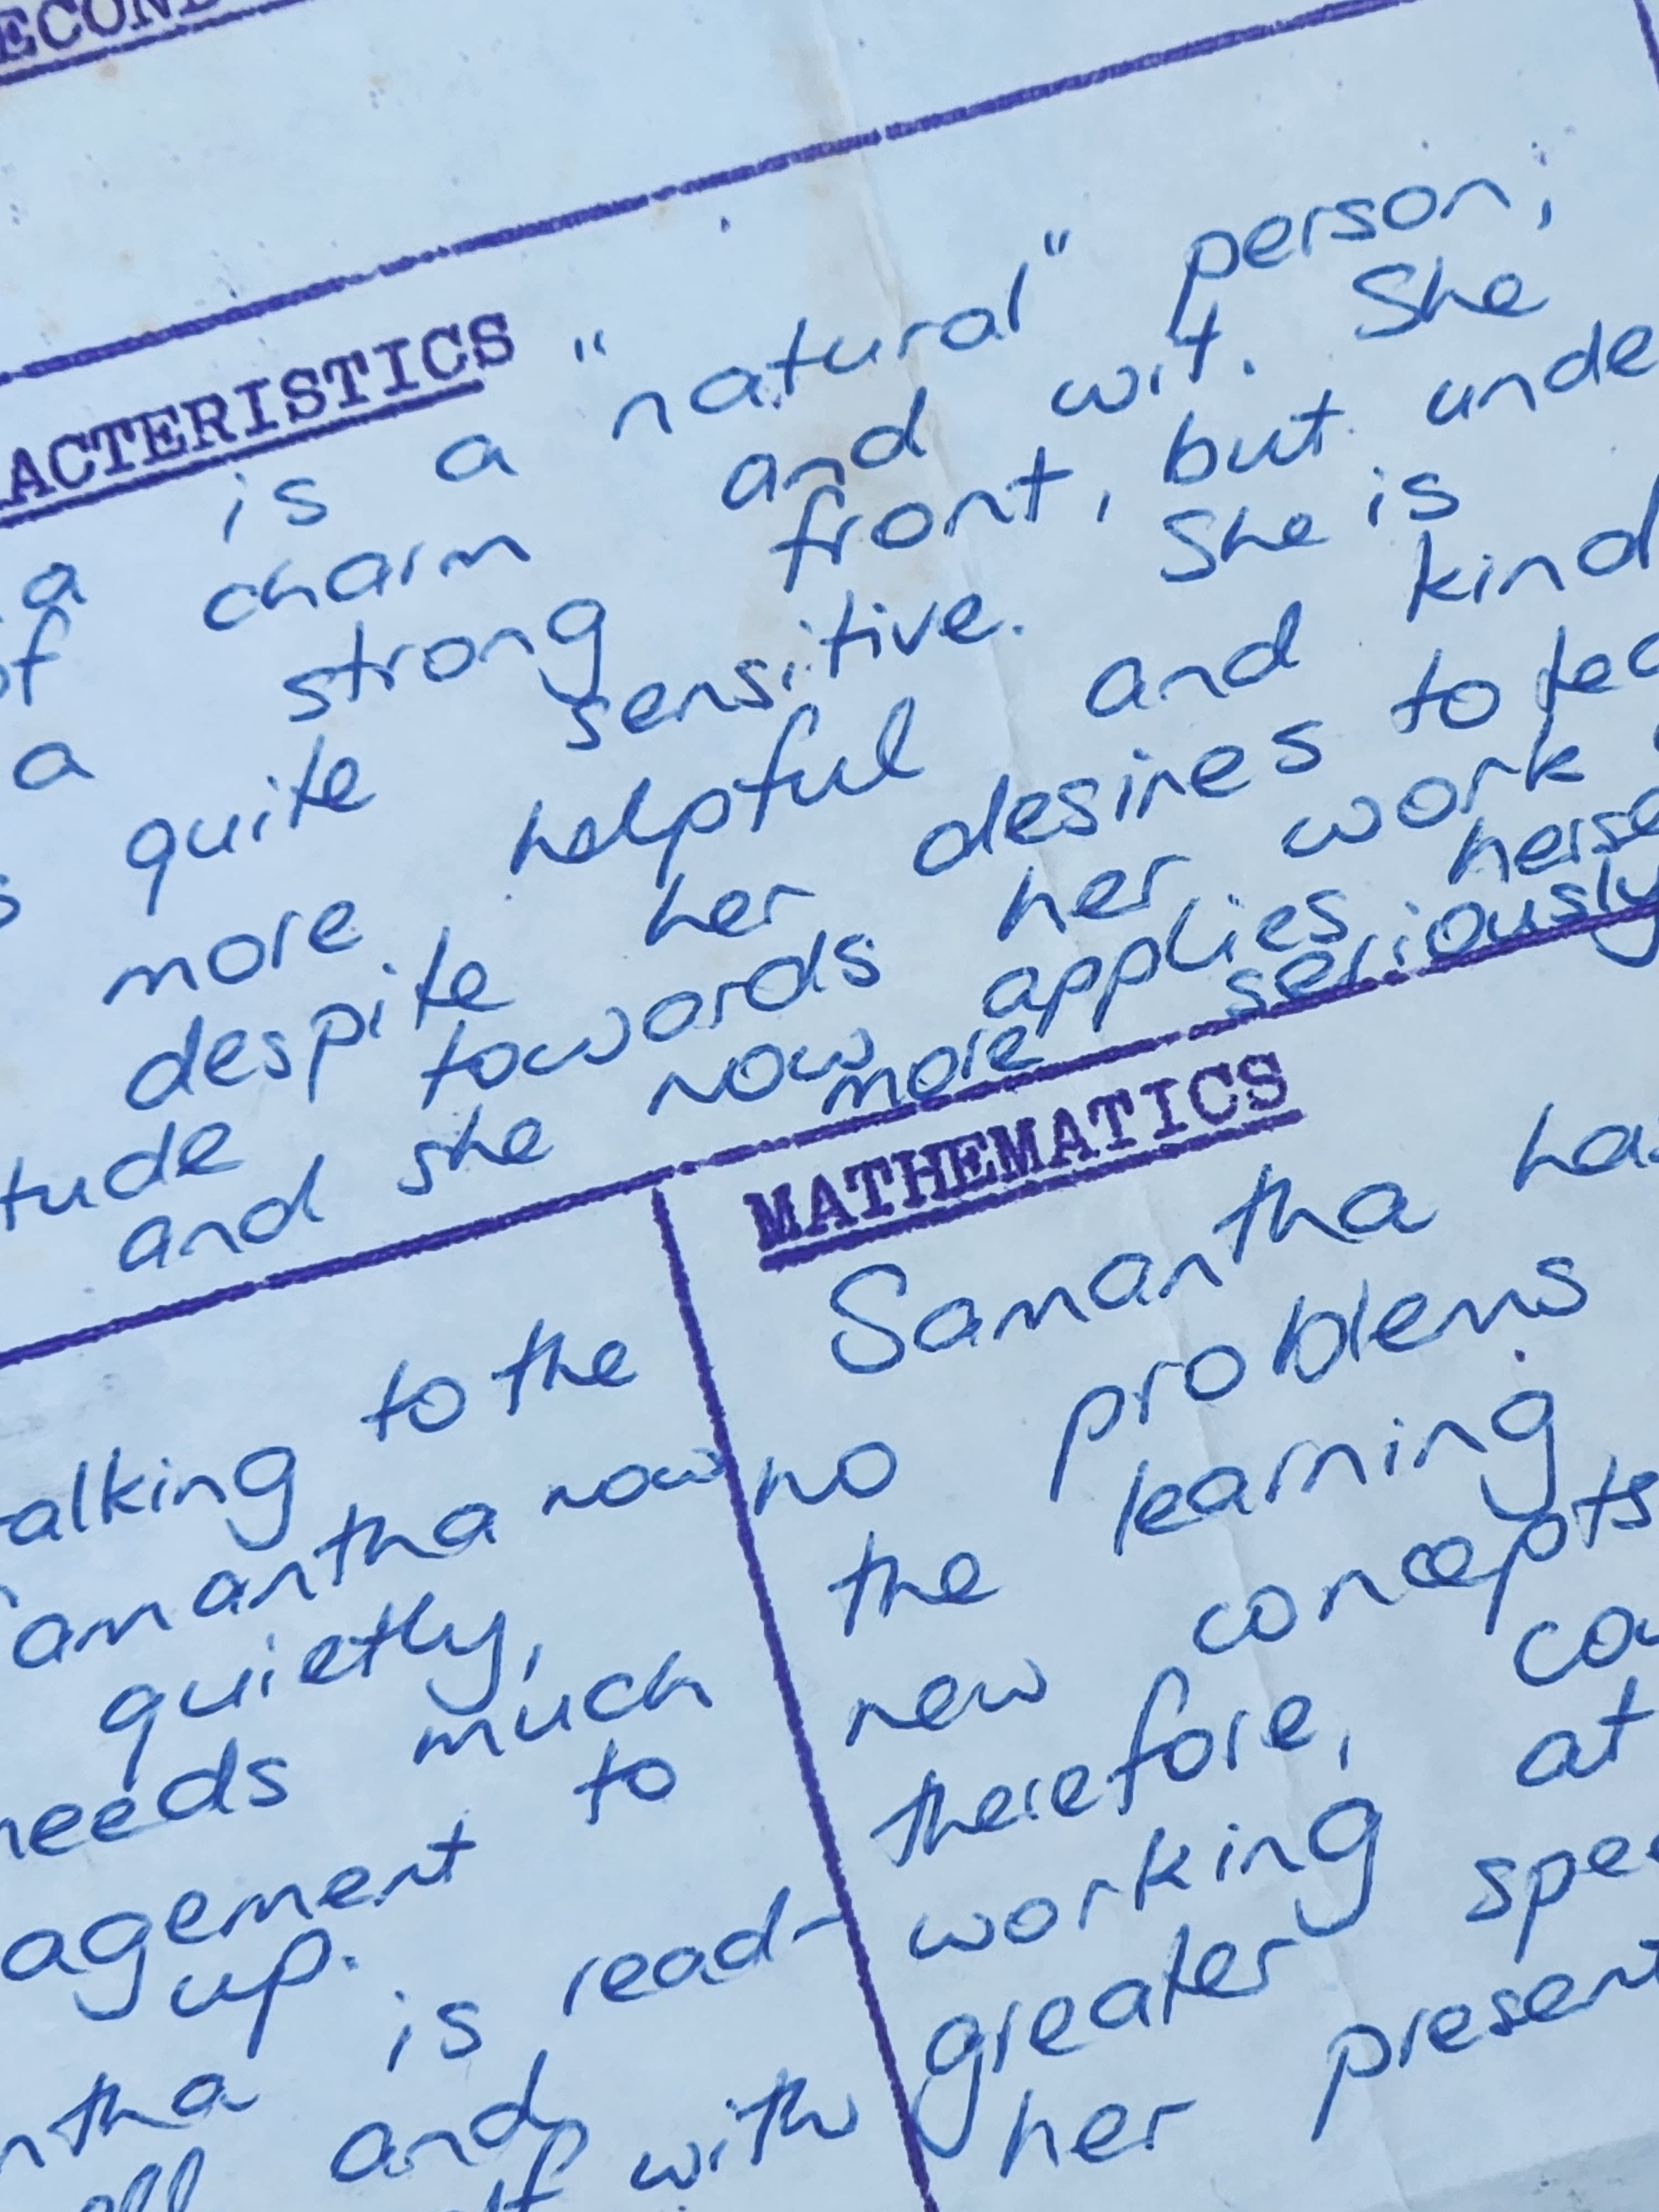 ECOND
ACTERISTICS
a is a "natural" person;
of charm and wit. She
a strong front, but unde
s quite sensitive. She is
more helpful and kind
despite her desires to tea
tude towards her work
and she now applies herse
more seriously
alking to the
amantha now
quietly,
needs much
agement to
up.
ntha is read-
and
with
MATHEMATICS
Samantha has
no problems
the learning
new concepts
therefore, cou
working at
greater spee
her present